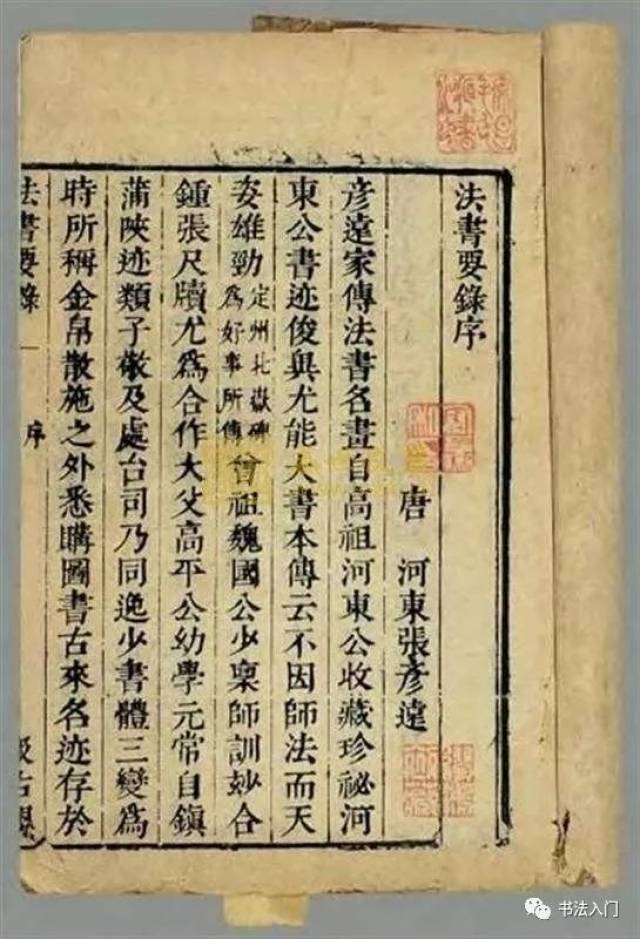 法書要錄序
唐 河東張彥遠
彥遠家傳法書名畫自高祖河東公收藏珍祕河
東公書迹俊與尤能大書本傳云不因師法而天
姿雄勁定州北嶽碑爲好事所傳曾祖魏國公少稟師訓妙合
鍾張尺牘尤爲合作大父高平公幼學元常自鎮
蒲陜迹類子敬及處台司乃同逸少書體三變爲
時所稱金帛散施之外悉購圖書古來名迹存於
法書要錄一 序
书法入门